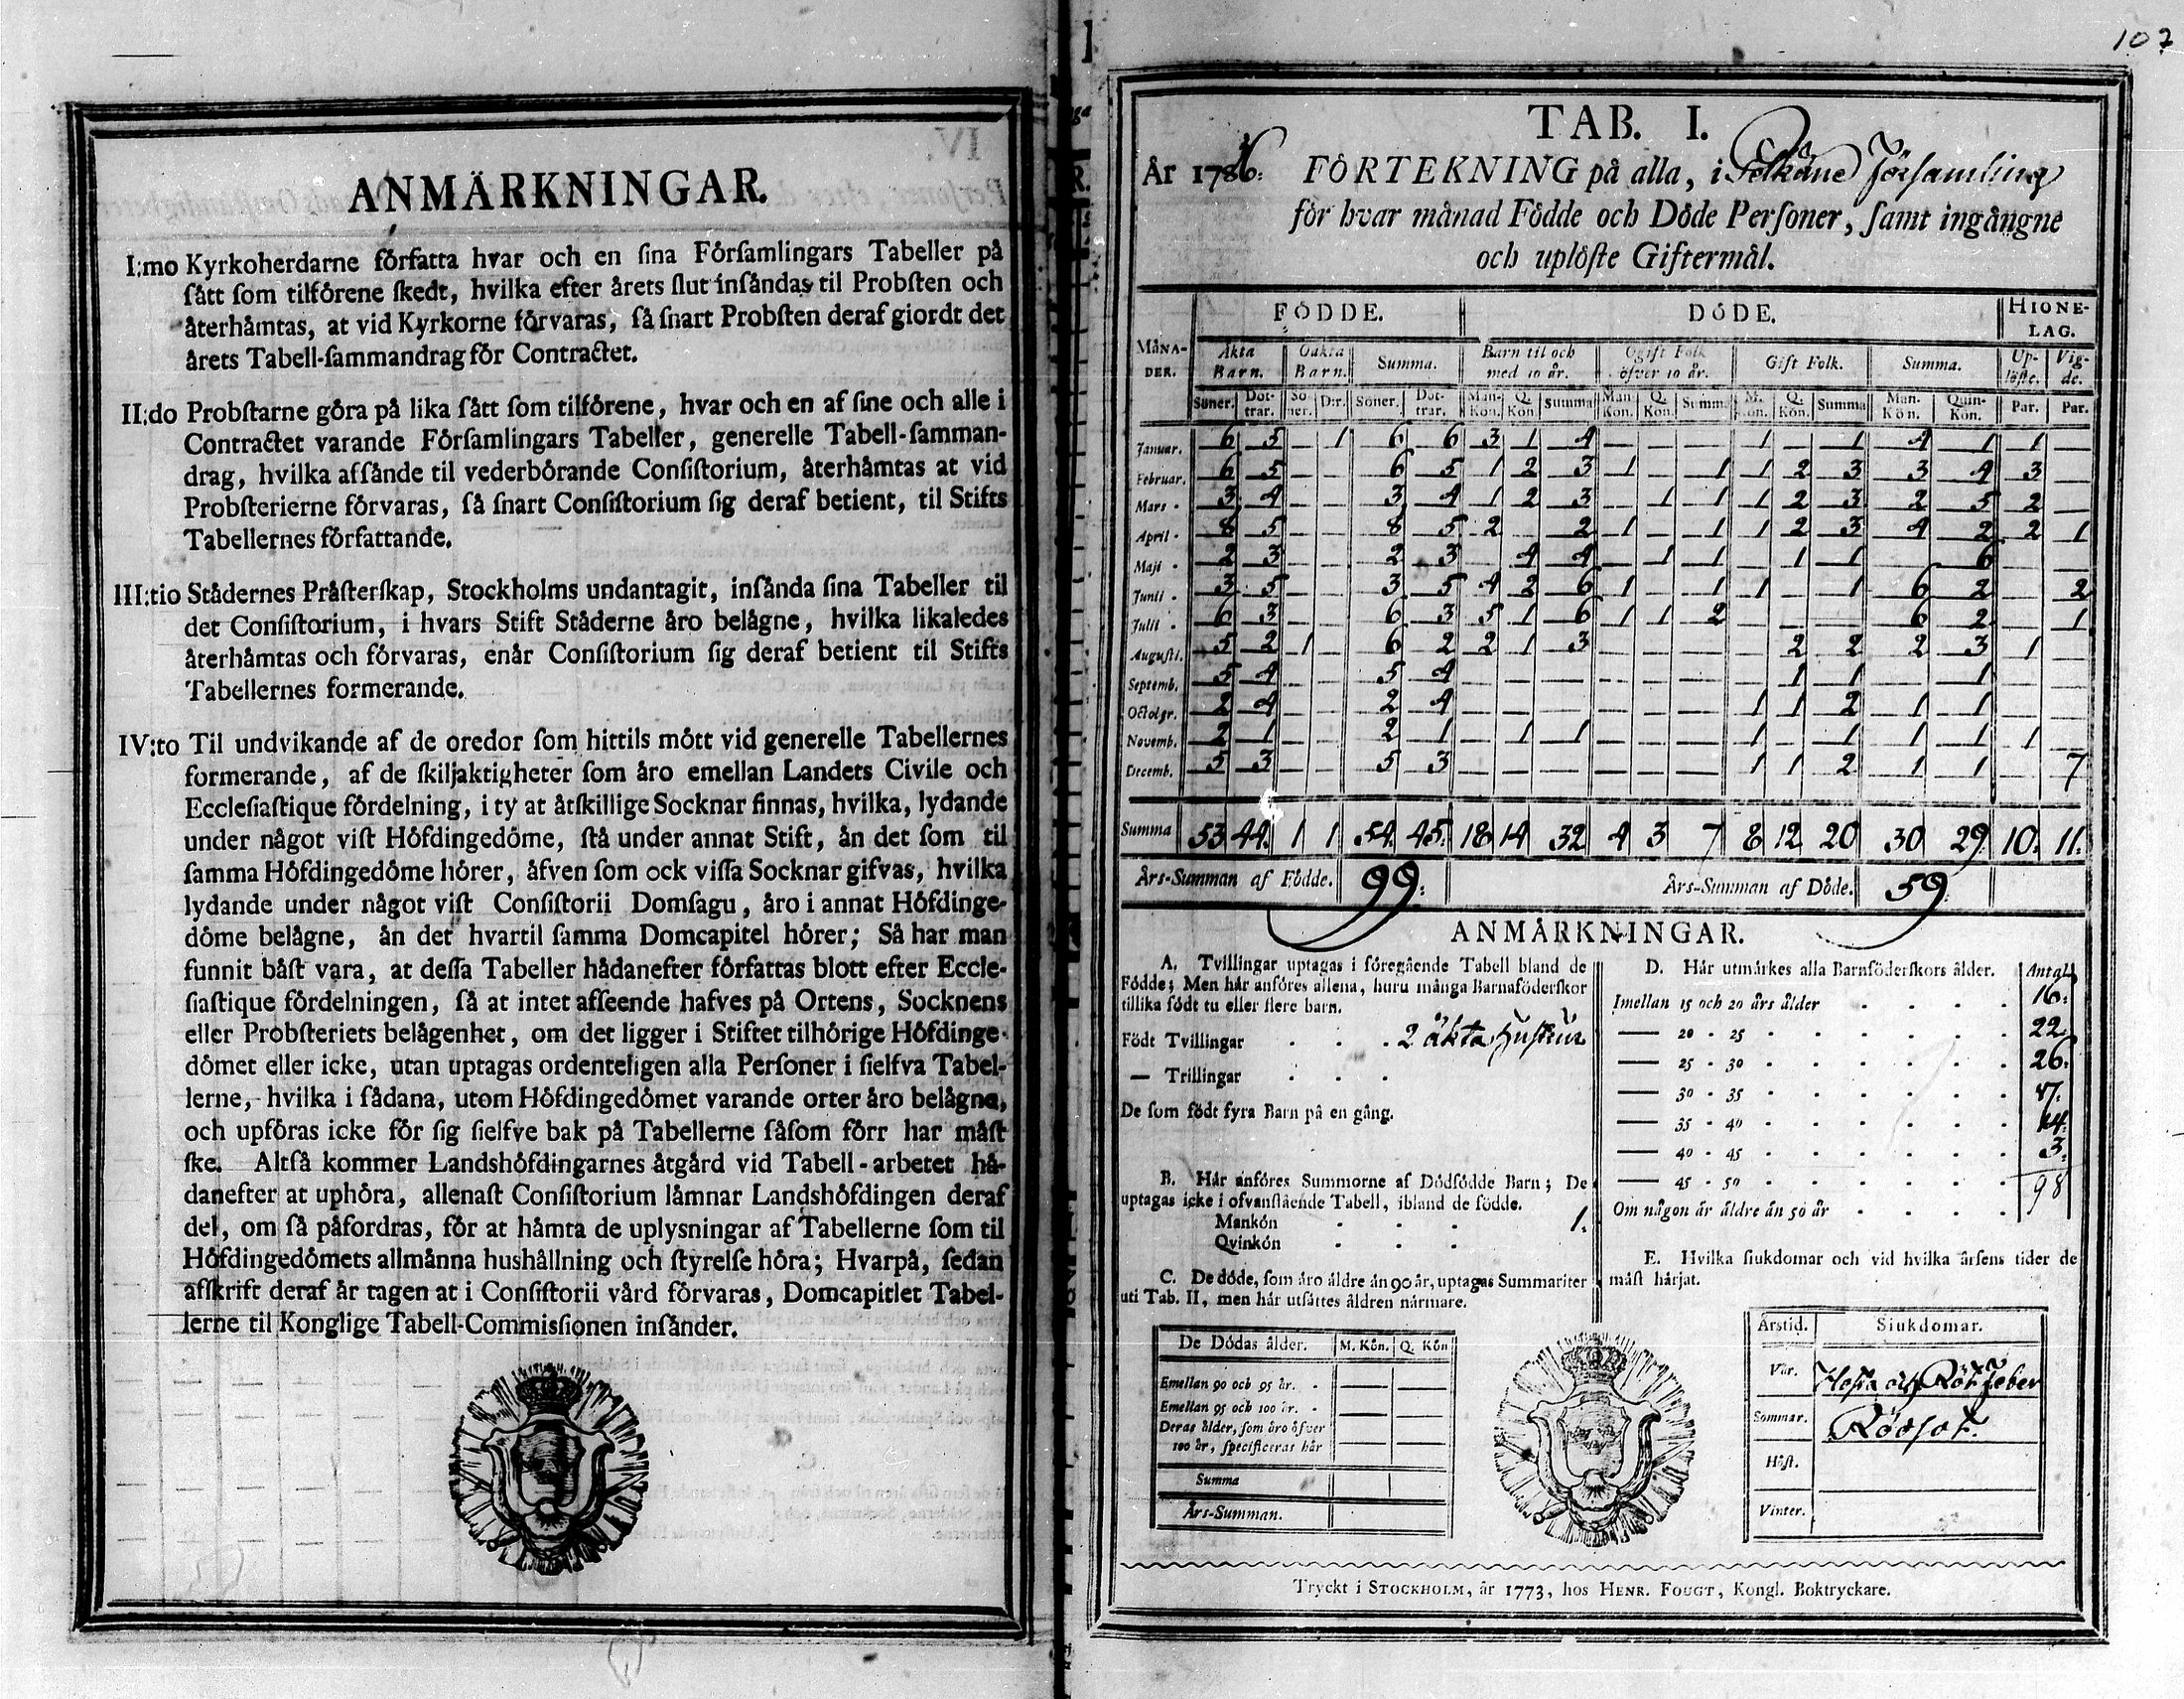 107
ANMÄRKNINGAR.
I:mo Kyrkoherdarne författa hvar och en ſina Förſamlingars Tabeller på
ſått ſom tilförene ſkedt, hvilka efter årets ſlut inſåndas til Probſten och
återhåmtas, at vid Kyrkorne förvaras, ſå ſnart Probſten deraf giordt det
årets Tabell-ſammandrag för Contractet.
II:do Probſtarne göra på lika ſått ſom tilförene, hvar och en af ſine och alle i
Contractet varande Förſamlingars Tabeller, generelle Tabell-ſamman-
drag, hvilka afſånde til vederbörande Conſiſtorium, återhåmtas at vid
Probſterierne förvaras, ſå ſnart Conſiſtorium ſig deraf betient, til Stifts
Tabellernes författande.
III:tio Stådernes Pråſterſkap, Stockholms undantagit, inſånda ſina Tabeller til
det Conſiſtorium, i hvars Stift Ståderne åro belågne, hvilka likaledes
återhåmtas och förvaras, enår Conſiſtorium ſig deraf betient til Stifts
Tabellernes formerande.
IV:to Til undvikande af de oredor ſom hittils mött vid generelle Tabellernes
formerande, af de ſkiljaktigheter ſom åro emellan Landets Civile och
Eccleſiaſtique fördelning, i ty at åtſkillige Socknar finnas, hvilka, lydande
under något viſt Höfdingedöme, ſtå under annat Stift, ån det ſom til
ſamma Höfdingedöme hörer, åfven ſom ock viſſa Socknar gifvas, hvilka
lydande under något viſt Conſiſtorii Domſagu, åro i annat Höfdinge-
döme belågne, ån det hvartil ſamma Domcapitel hörer; Så har man
funnit båſt vara, at deſſa Tabeller hådanefter författas blott efter Eccle-
ſiaſtique fördelningen, ſå at intet afſeende hafves på Ortens, Socknens
eller Probſteriets belågenhet, om det ligger i Stiftet tilhörige Höfdinge-
dömet eller icke, utan uptagas ordenteligen alla Perſoner i ſielfva Tabel-
lerne, hvilka i ſådana, utom Höfdingedömet varande orter åro belågne,
och upföras icke för ſig ſielfve bak på Tabellerne ſåſom förr har måſt
ſke. Altſå kommer Landshöfdingarnes åtgård vid Tabell-arbetet hå-
danefter at uphöra, allenaſt Conſiſtorium låmnar Landshöfdingen deraf
del, om ſå påfordras, för at håmta de uplysningar af Tabellerne ſom til
Höfdingedömets allmånna hushållning och ſtyrelſe höra; Hvarpå, ſedan
afſkrift deraf år tagen at i Conſiſtorii vård förvaras, Domcapitlet Tabel-
lerne til Konglige Tabell-Commiſſionen inſånder.
TAB. I.
År 1786. FÖRTEKNING på alla, i Pelkäne Församling
för hvar månad Födde och Döde Perſoner, ſamt ingångne
och uplöſte Giftermål.
FÖDDE. DÖDE. HIONE-LAG.
MÅNA-DER. Äkta Barn. Oäkta Barn. Summa. Barn til och med 10 år. Ogift Folk öfver 10 år. Gift Folk. Summa. Up-löſte. Vig-de.
Söner. Döt-trar. Sö-ner. D:r. Söner. Döt-trar. Man-Kön. Q. Kön. Summa Man-Kön. Q. Kön. Summa M. Kön. Q. Kön. Summa Man-Kön. Quin-Kön. Par. Par.
Januar. 6 5 — 1 6 6 3 1 4 — — — 1 — 1 4 1 1 —
Februar. 6 5 — — 6 5 1 2 3 1 — 1 1 2 3 3 4 3 —
Mars 3 4 — — 3 4 1 2 3 — 1 1 1 2 3 2 5 2 —
April 8 5 — — 8 5 2 — 2 1 — 1 1 2 3 4 2 2 1
Maji 2 3 — — 2 3 — 4 4 — 1 1 — 1 1 — 6 — —
Junii 3 5 — — 3 5 4 2 6 1 — 1 1 — 1 6 2 — 2
Julii 6 3 — — 6 3 5 1 6 1 1 2 — — — 6 2 — 1
Auguſti. 5 2 1 — 6 2 2 1 3 — — — — 2 2 2 3 1 —
Septemb. 5 4 — — 5 4 — — — — — — — 1 1 — 1 — —
Octobr. 2 4 — — 2 4 — — — — — — 1 1 2 1 1 — —
Novemb. 2 1 — — 2 1 — 1 1 — — — 1 — 1 1 1 1 —
Decemb. 5 3 — — 5 3 — — — — — — 1 1 2 1 1 — 7
Summa 53 44. 1 1 54. 45. 18 14 32 4 3 7 8 12 20 30 29 10. 11.
Års-Summan af Födde. 99. Års-Summan af Döde. 59
ANMÄRKNINGAR.
A. Tvillingar uptagas i föregående Tabell bland de
Födde; Men hår anföres allena, huru många Barnaföderſkor
tillika födt tu eller flere barn.
Födt Tvillingar . . . 2 äkta Hustrur
— Trillingar . . .
De ſom födt fyra Barn på en gång.
B. Hår anföres Summorne af Dödfödde Barn; De
uptagas icke i ofvanſtående Tabell, ibland de födde.
Mankön . . . 1.
Qvinkön . . .
C. De döde, ſom åro åldre ån 90 år, uptagas Summariter
uti Tab. II, men hår utſåttes åldren nårmare.
De Dödas ålder. M. Kön. Q. Kön
Emellan 90 och 95 år. — —
Emellan 95 och 100 år. — —
Deras ålder, ſom åro öfver
100 år, ſpecificeras hår — —
Summa
Års-Summan.
D. Hår utmårkes alla Barnföderſkors ålder. Antal
Imellan 15 och 20 års ålder 16.
— 20 - 25 22
— 25 - 30 26.
— 30 - 35 17.
— 35 - 40 14.
— 40 - 45 3.
— 45 - 50 98
Om någon år åldre ån 50 år
E. Hvilka ſiukdomar och vid hvilka årſens tider de
måſt hårjat.
Årstid. Siukdomar.
Vår. Hosta och Rötfeber
Sommar. Rödsot.
Höſt.
Vinter.
Tryckt i STOCKHOLM, år 1773, hos HENR. FOUGT, Kongl. Boktryckare.